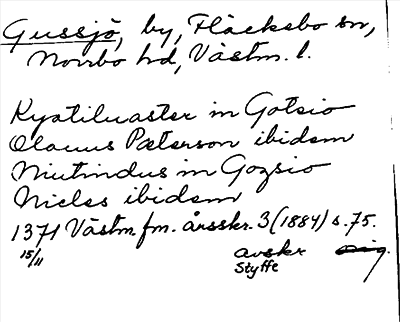 Gussjö, by, Fläckebo sn,
Norrbo hd, Västm. l.
Kyatiluaster in Gotsio
Olauus Pæterson ibidem
Niutindus in Gozsio
Niclss ibidem
1371 Västm. fm. årsskr. 3 (1884) s. 75.
15/11 avskr orig.
Styffe